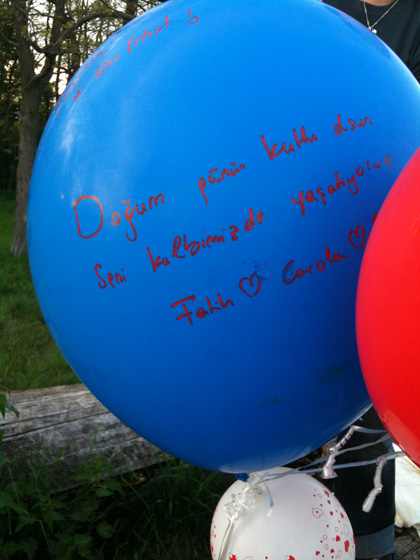 Doğum günün kutlu olsun
Seni kalbimizde yaşatıyoruz
Fatih ♡ Carola ♡